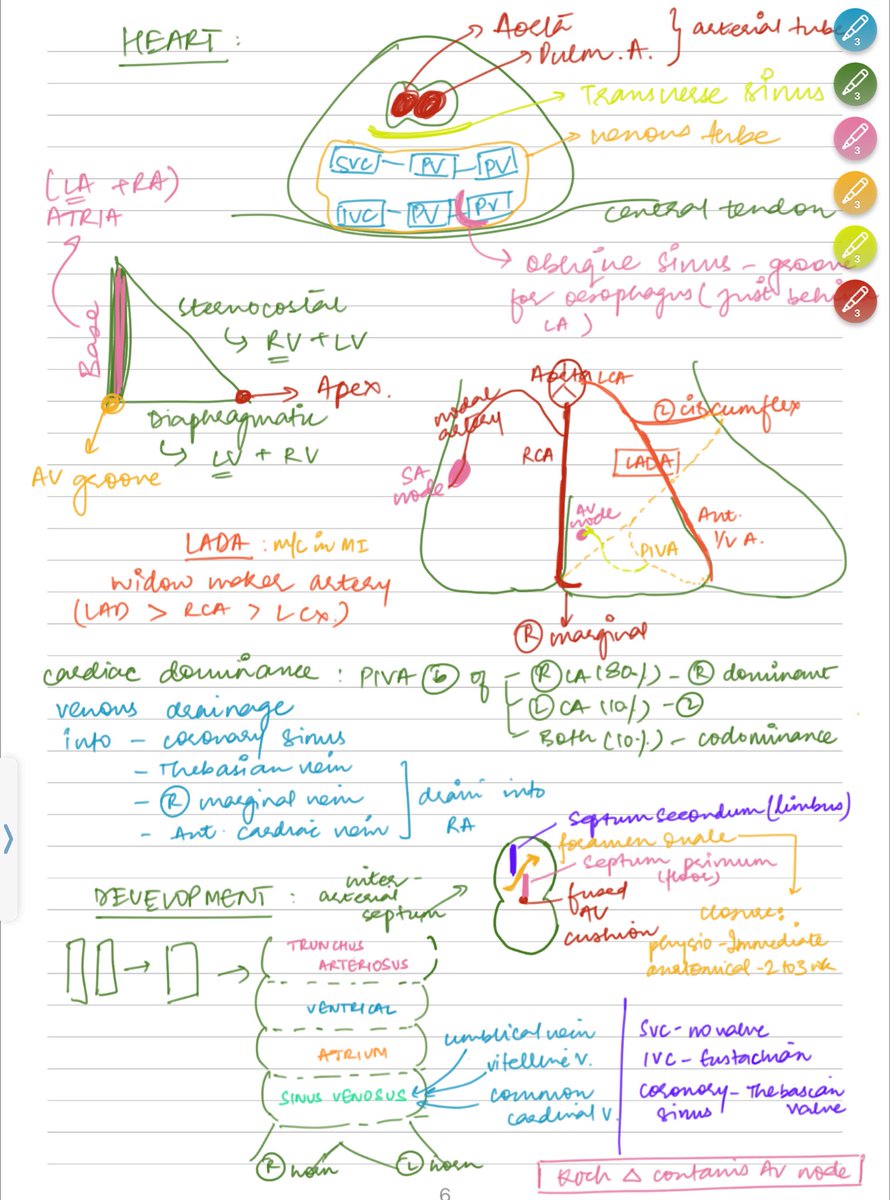 HEART :
Aorta
Pulm. A.
} arterial tube
Transverse sinus
venous tube
SVC - PV - PV
IVC - PV - PV
central tendon
oblique sinus - groove
for oesophagus (just behi
LA)
(LA + RA)
ATRIA
Base
sternocostal
↳ RV + LV
Apex.
Diaphragmatic
↳ LV + RV
AV groove
Aorta
LCA
nodal
artery
Ⓛ circumflex
RCA
LADA
SA
node
AV
node
Ant.
I/V A.
PIVA
Ⓡ marginal
LADA : m/c in MI
widow maker artery
(LAD > RCA > LCx.)
cardiac dominance : PIVA ⓑ of - Ⓡ CA (80%) - Ⓡ dominant
Ⓛ CA (10%) - Ⓛ
Both (10%) - codominance
venous drainage
into - coronary sinus
- Thebasian vein
- Ⓡ marginal vein
- Ant. cardiac vein
drain into
RA
septum secondum (limbus)
foramen ovale
septum primum
(floor)
fused
AV
cushion
closure:
physio - Immediate
anatomical - 2 to 3 wk
DEVELOPMENT : inter-
arterial
septum
TRUNCHUS
ARTERIOSUS
VENTRICAL
ATRIUM
SINUS VENOSUS
umblical vein
vitelline V.
common
cardinal V.
Ⓡ horn
Ⓛ horn
SVC - no valve
IVC - Eustachian
coronary - Thebascian
sinus valve
Koch △ contanis AV node
6
3
3
3
3
3
3